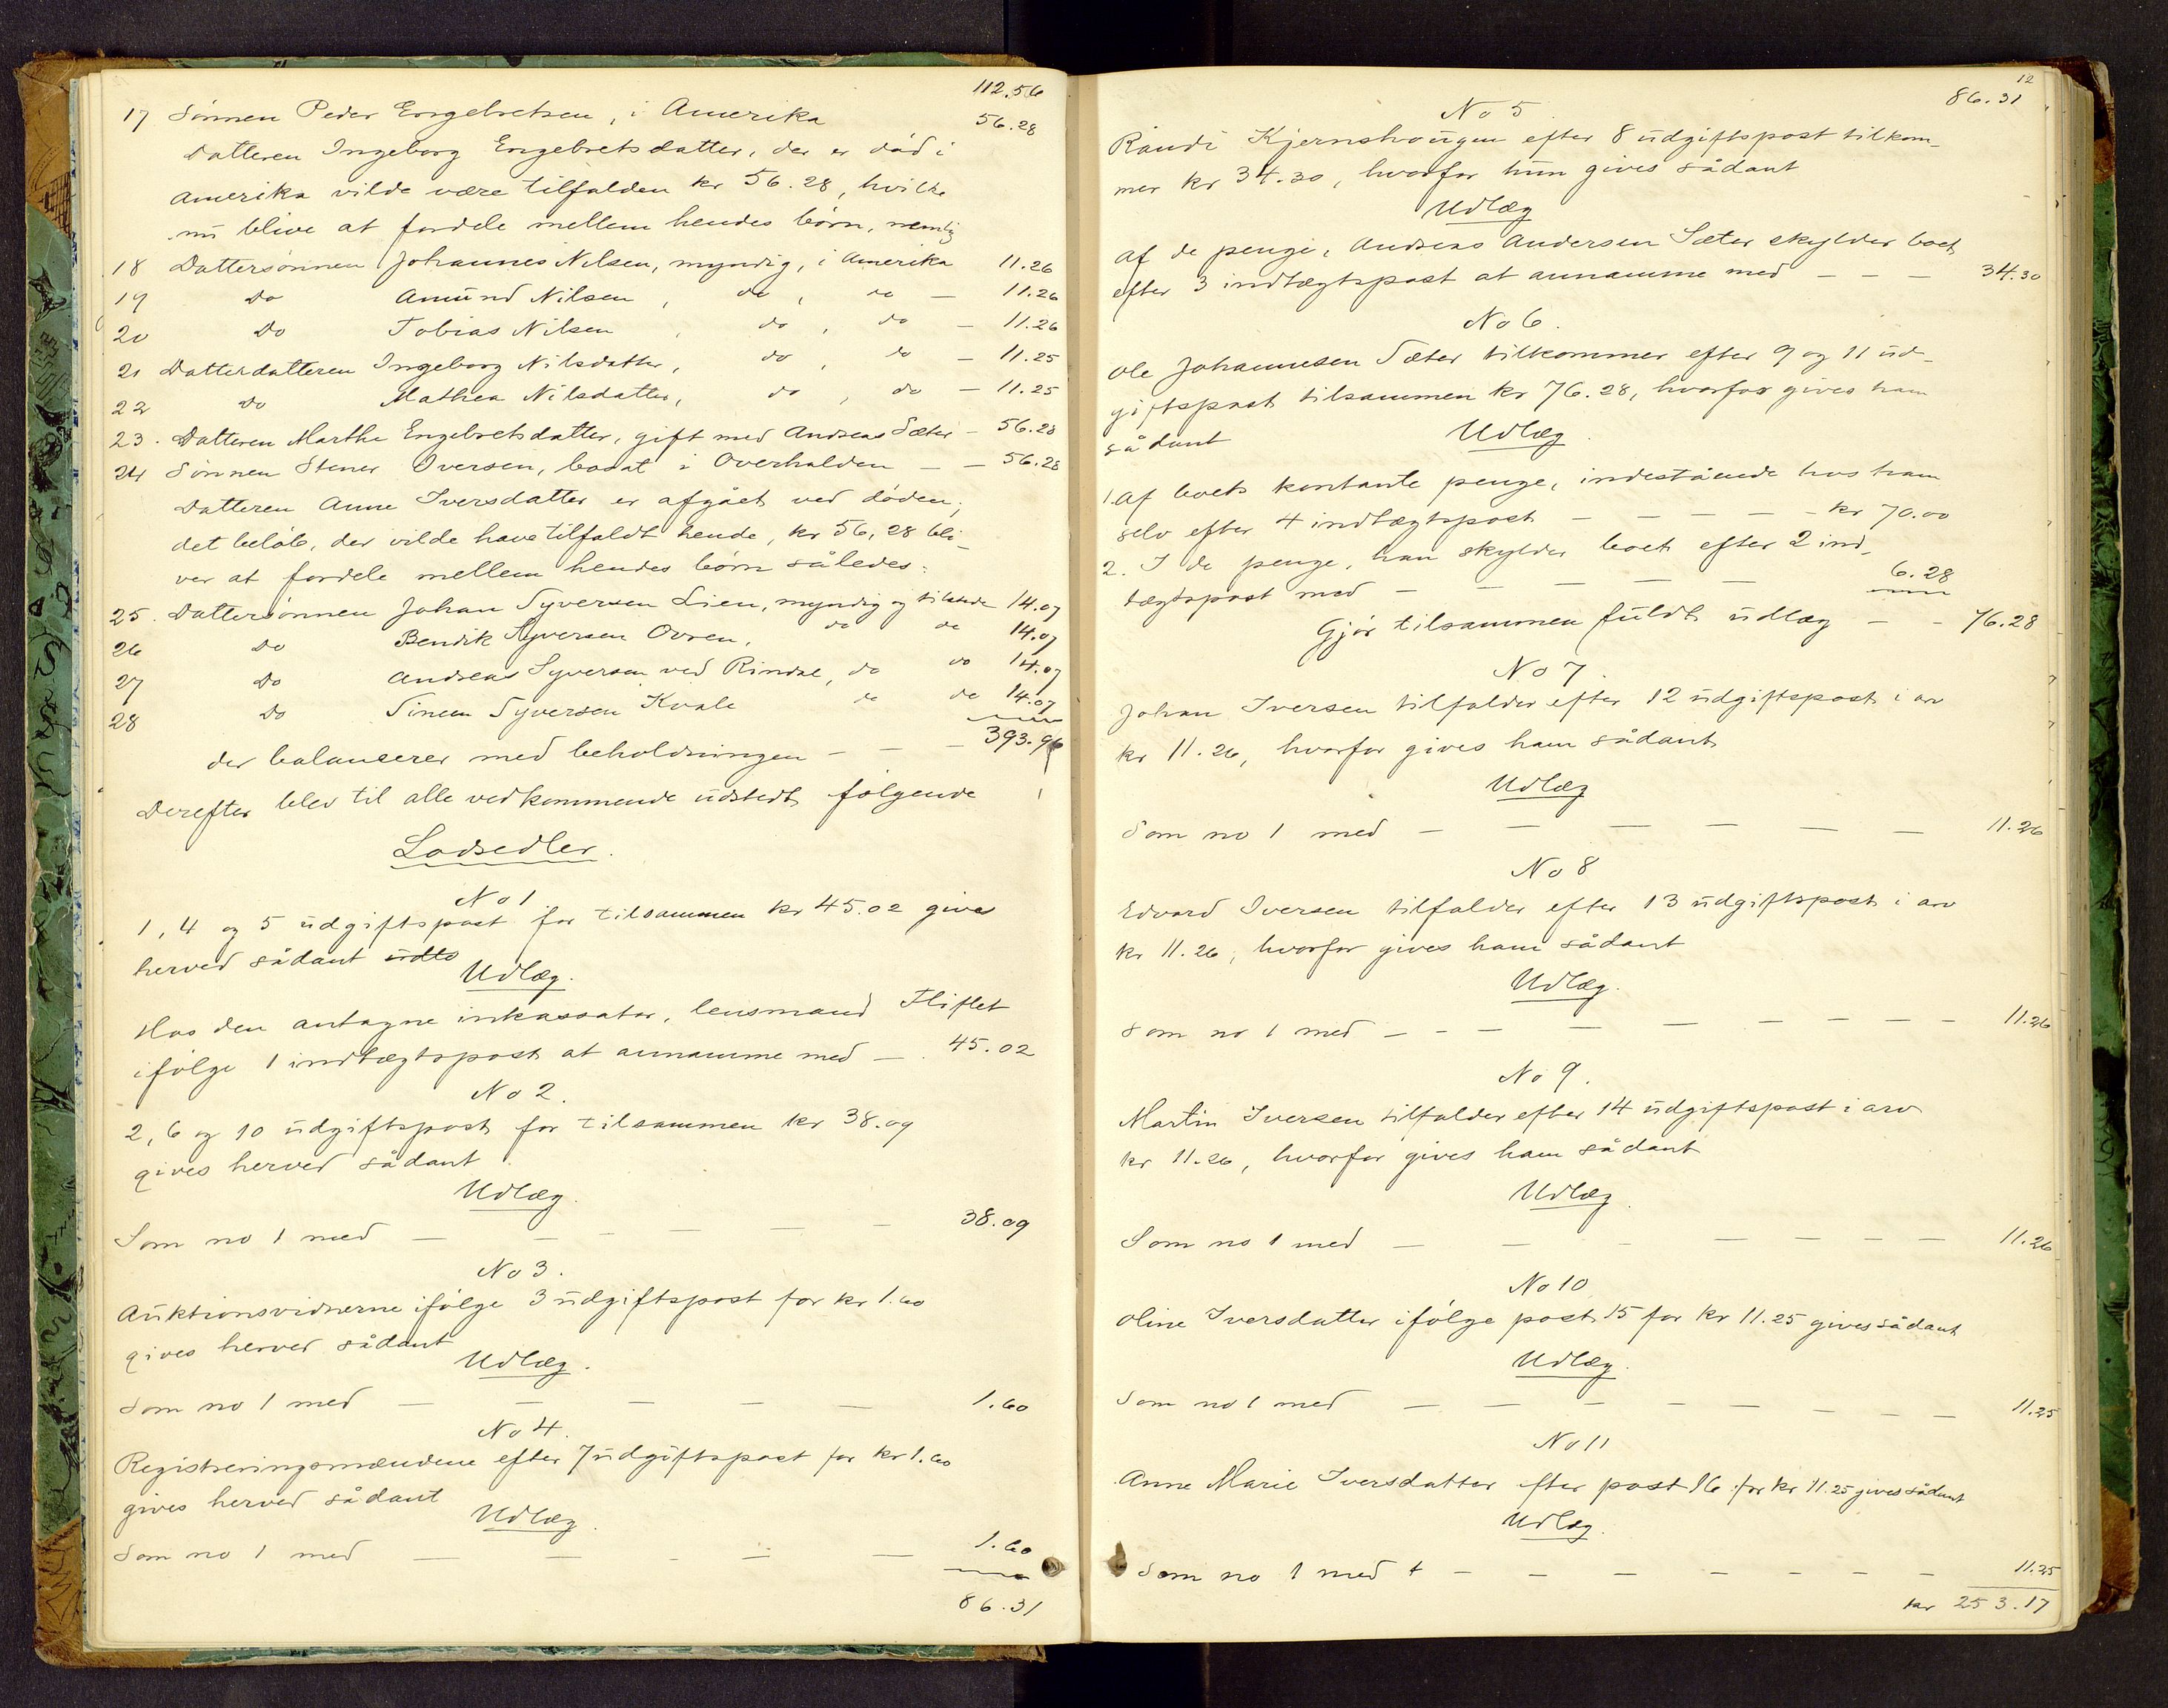 112.56
17 Sønnen Peder Engebretsen, i Amerika 56.28
Datteren Ingeborg Engebretsdatter, der er död i
Amerika vilde være tilfalden kr 56.28, hvilke
nu blive at fordele mellem hendes börn, nemlig
18 Dattersönnen Johannes Nilsen, myndig, i Amerika 11.26
19 Do Amund Nilsen, do, do — 11.26
20 Do Tobias Nilsen, do, do — 11.26
21 Datterdatteren Ingeborg Nilsdatter, do, do — 11.25
22 Do Mathea Nilsdatter, do, do — 11.25
23. Datteren Marthe Engebretsdatter, gift med Andreas Sæter — 56.28
24 Sönnen Stener Iversen, bosat i Overhalden — — 56.28
Datteren Anne Iversdatter er afgået ved döden;
det belöb, der vilde have tilfaldt hende, kr 56,28 bli-
ver at fordele mellem hendes börn således:
25. Dattersönnen Johan Syversen Lien, myndig og tilstede 14.07
26 Do Bendik Syversen Ovren, do do 14.07
27 Do Andreas Syversen ved Rindal, do do 14.07
28 Do Simen Syversen Kvale do do 14.07
der balancerer med beholdningen — — — 393.96
Derefter blev til alle vedkommende udstedt fölgende
Lodsedler.
No 1
1, 4 og 5 udgiftspost for tilsammen kr 45.02 gives
herved sådant udlo
Udlæg.
Hos den antagne inkassator, lensmand Fliflet
ifölge 1 indtægtspost at annamme med — 45.02
No 2.
2, 6 og 10 udgiftspost for tilsammen kr 38.09
gives herved sådant
Udlæg.
Som no 1 med — — — — — — 38.09
No 3.
Auktionsvidnerne ifölge 3 udgiftspost for kr 1.60
gives herved sådant
Udlæg.
Som no 1 med — — — — — 1.60
No 4.
Registreringsmændene efter 7 udgiftspost for kr 1.60
gives herved sådant
Udlæg.
Som no 1 med — — — — — 1.60
86.31
12
86.31
No 5
Randi Kjernshougen efter 8 udgiftspost tilkom-
mer kr 34.30, hvorfor hun gives sådant
Udlæg
Af de penge, Andreas Andersen Sæter skylder boet
efter 3 indtægtspost at annamme med — — — 34.30
No 6.
Ole Johannesen Sæter tilkommer efter 9 og 11 ud-
giftspost tilsammen kr 76.28, hvorfor gives ham
sådant Udlæg.
1. Af boets kontante penge, indestående hos ham
selv efter 4 indtægtspost — — — — — kr 70.00
2. I de penge, han skylder boet efter 2 ind-
tægtspost med — — — — — 6.28
Gjör tilsammen fuldt udlæg — — 76.28
No 7.
Johan Iversen tilfalder efter 12 udgiftspost i arv
kr 11.26, hvorfor gives ham sådant
Udlæg
Som no 1 med — — — — — — 11.26
No 8
Edvard Iversen tilfalder efter 13 udgiftspost i arv
kr 11.26, hvorfor gives ham sådant
Udlæg.
Som no 1 med — — — — — — — — — 11.26
No 9.
Martin Iversen tilfalder efter 14 udgiftspost i arv
kr 11.26, hvorfor gives ham sådant
Udlæg.
Som no 1 med — — — — — — — 11.26
No 10
Oline Iversdatter ifölge post 15 for kr 11.25 gives sådant
Udlæg.
Som no 1 med — — — — — — — — 11.25
No 11
Anne Marie Iversdatter efter post 16 for kr 11.25 gives sådant
Udlæg.
Som no 1 med — — — — — — — 11.25
kr 253.17